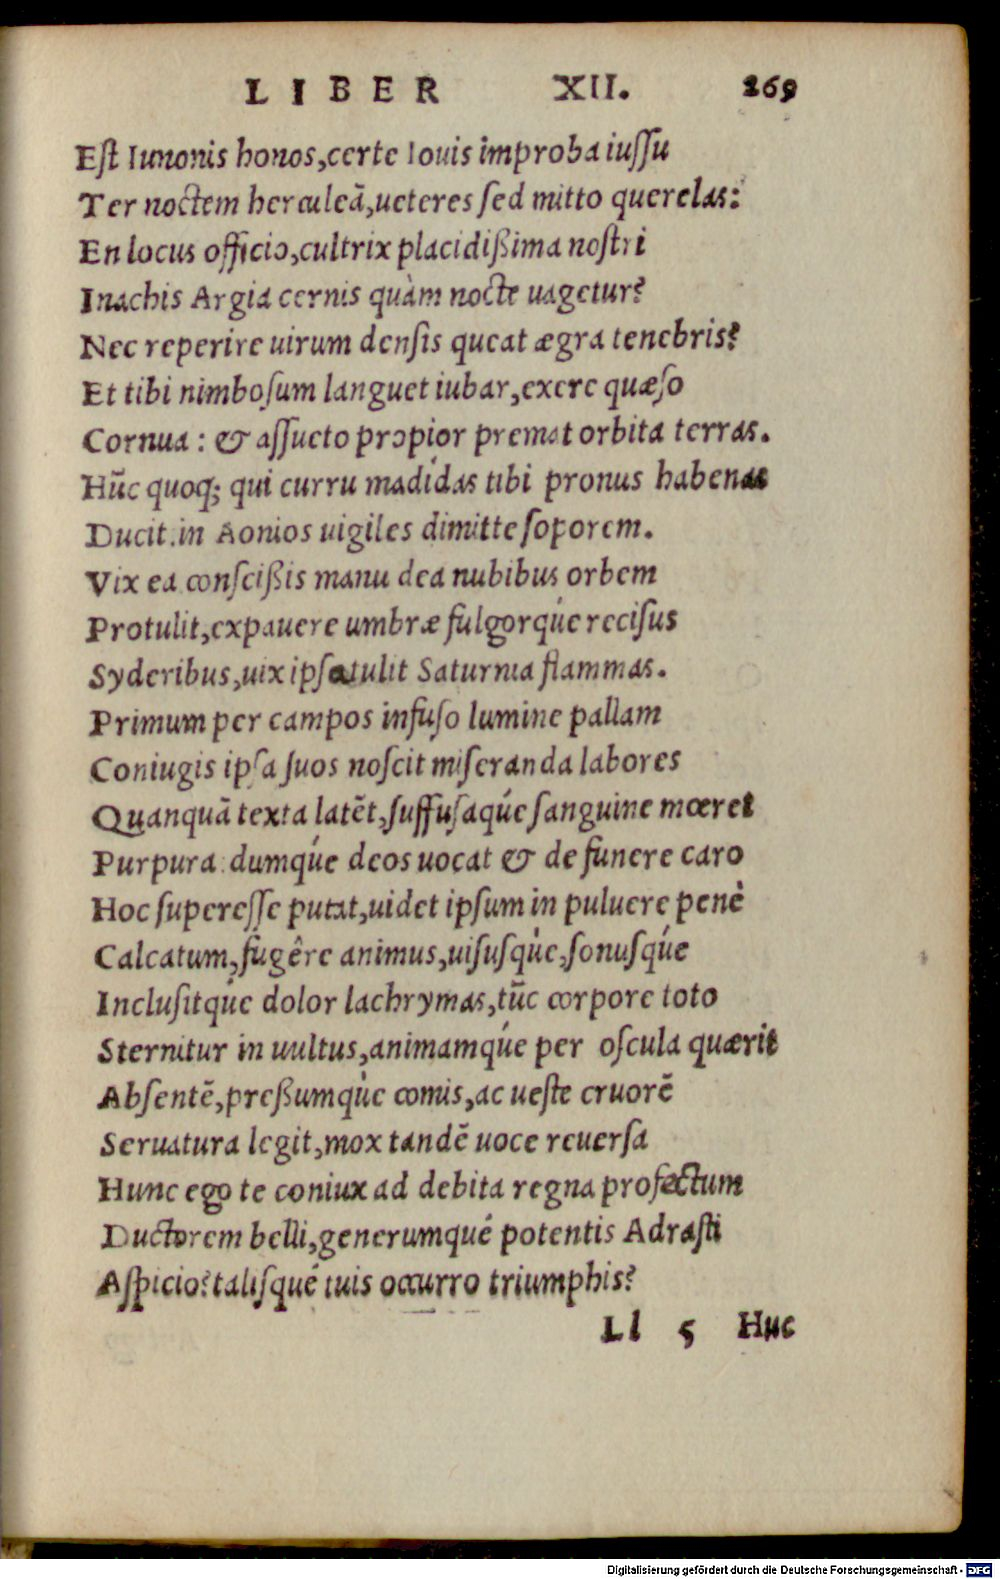 LIBER XII. 269
Est Iunonis honos,certe Iouis improba iussu
Ter noctem herculeā,ueteres sed mitto querelas:
En locus officio,cultrix placidißima nostri
Inachis Argia cernis quàm nocte uagetur?
Nec reperire uirum densis queat ægra tenebris?
Et tibi nimbosum languet iubar,exere quæso
Cornua : & assueto propior premat orbita terras.
Hūc quoq; qui curru madidas tibi pronus habenas
Ducit.in Aonios uigiles dimitte soporem.
Vix ea conscißis manu dea nubibus orbem
Protulit,expauere umbræ fulgorq́ue recisus
Syderibus,uix ipsa tulit Saturnia flammas.
Primum per campos infuso lumine pallam
Coniugis ipsa suos noscit miseranda labores
Quanquā texta latēt,suffusaq́ue sanguine mœret
Purpura : dumq́ue deos uocat & de funere caro
Hoc superesse putat,uidet ipsum in puluere penè
Calcatum,fugêre animus,uisusq̀ue,sonusq́ue
Inclusitq́ue dolor lachrymas,tūc corpore toto
Sternitur in uultus,animamq́ue per oscula quærit
Absentē,preßumq̀ue comis,ac ueste cruorē
Seruatura legit,mox tandē uoce reuersa
Hunc ego te coniux ad debita regna profectum
Ductorem belli,generumqué potentis Adrasti
Aspicio?talisqué tuis occurro triumphis?
Ll 5 Huc
Digitalisierung gefördert durch die Deutsche Forschungsgemeinschaft - DFG